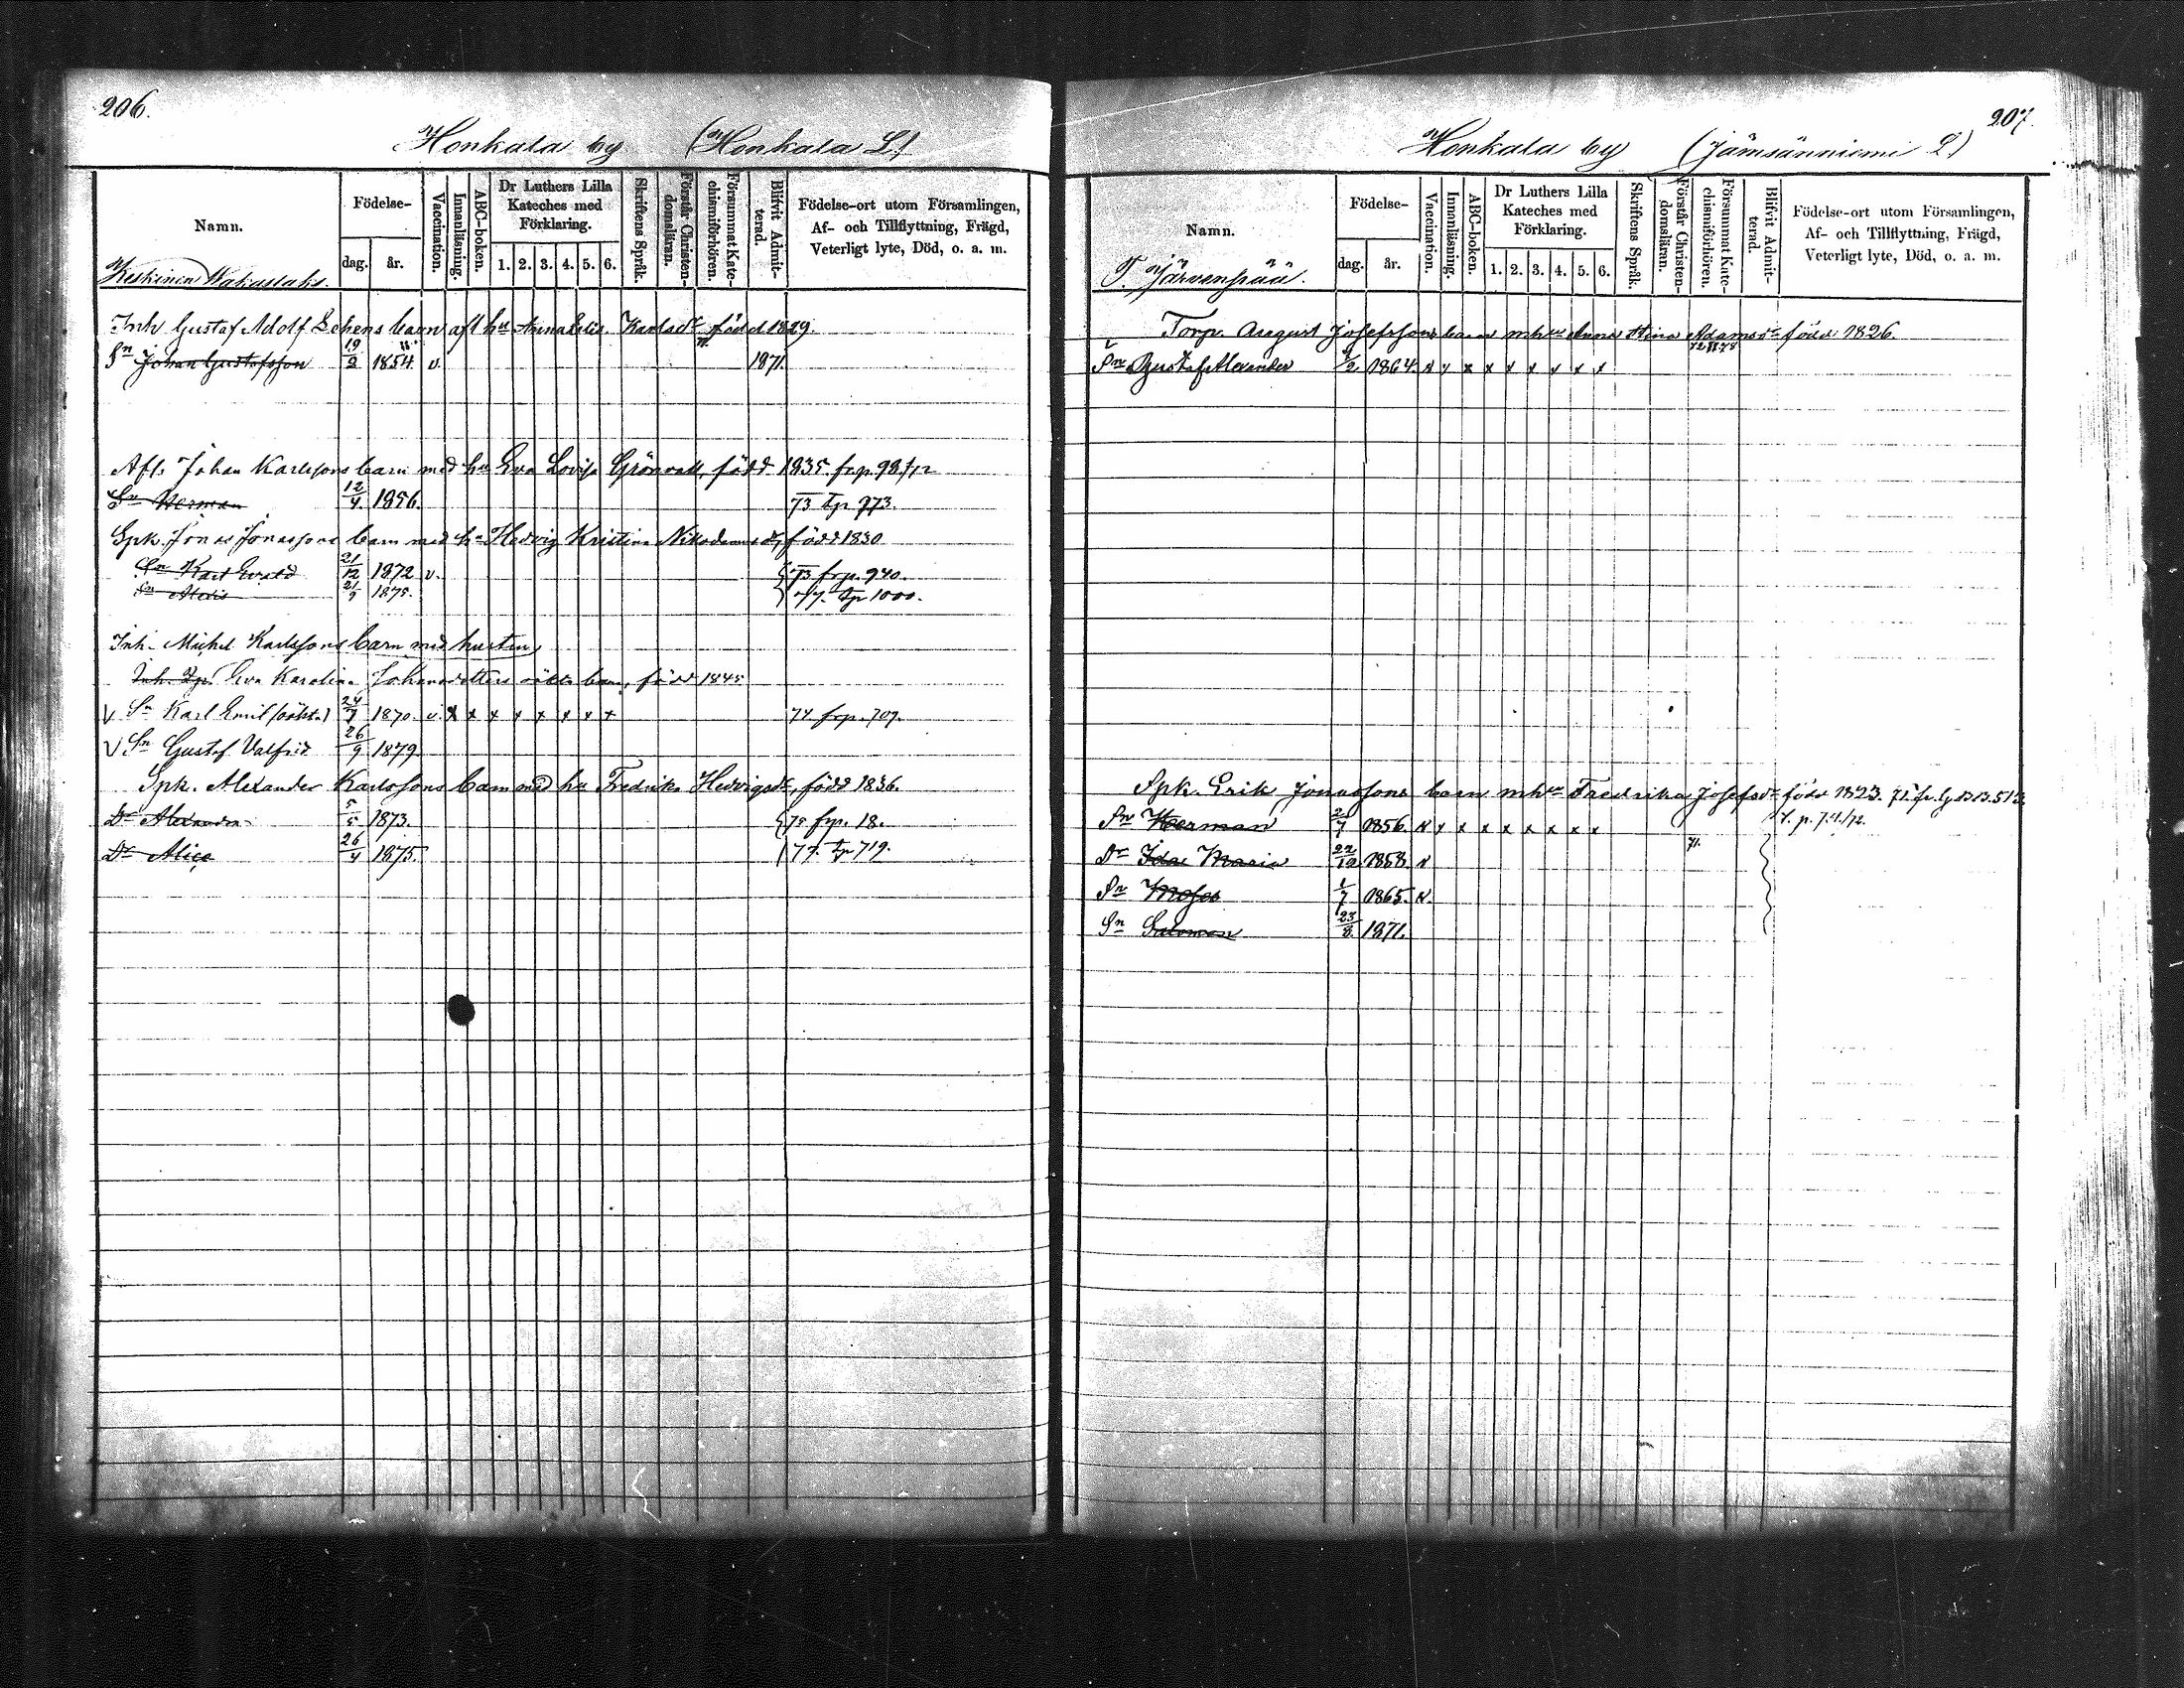 206.
Honkala by (Honkala L.)
Namn.
Födelse-
dag.
år.
Vaccination.
Innanläsning.
ABC-boken.
Dr Luthers Lilla Kateches med Förklaring.
1. 2. 3. 4. 5. 6.
Skriftens Språk.
Förstår Christen-domsläran.
Försummat Kate-chismiförhören.
Blifvit Admit-terad.
Födelse-ort utom Församlingen,
Af- och Tillflyttning, Frägd,
Veterligt lyte, Död, o. a. m.
Keskinen
Inh Gustaf Adolf barn aflhu Anna Karlsdr född 1829.
Sn Johan Gustafsson 19/2 1854 v. 1871.
Afl. Johan Karlssons barn med hu Eva Lovisa Grönvall, född 1835. frp. 98/72
Sn Herman 12/4. 1856. 73 tp 973.
Spk. Jonas Jonassons barn med hu Hedvig Kristina född 1830
Sn Karl Evald 21/12 1872 v. 73 frp. 940.
Sn Alexis 1875. 77. tp 1000.
Inh. Michel Karlssons barn med hustru
Eva Karolina född 1845
V Sn Karl Emil (oäkt.) 24/7 1870. v. x x x x x x x x 74 frp. 707.
V Sn Gustaf Valfrid 26/9 1879
Spk. Alexander Karlssons barn med hu Fredrika Hedvigsdr, född 1836.
Dr Alexandra 5/5 1873. 75 frp. 18.
Dr Alice 26/4 1875. 77. tp 719.
207.
Honkala by (Jämsänniemi L)
Namn.
Födelse-
dag.
år.
Vaccination.
Innanläsning.
ABC-boken.
Dr Luthers Lilla Kateches med Förklaring.
1. 2. 3. 4. 5. 6.
Skriftens Språk.
Förstår Christen-domsläran.
Försummat Kate-chismiförhören.
Blifvit Admit-terad.
Födelse-ort utom Församlingen,
Af- och Tillflyttning, Frägd,
Veterligt lyte, Död, o. a. m.
T. Järvenpää.
Torp. August Josefssons barn mhu Anna Stina Adamsdr född 1826.
Sn Gustaf Alexander 1864. v x x x x x x x x
Spk. Erik Jonassons barn mhu Fredrika Josefsdr född 1823.
Sn Herman 1856. v x x x x x x x x
Dr Ida Maria 22/10 1858. v 71.
Sn Moses 1/7 1865. v.
Sn Salomon 23/8. 1871.